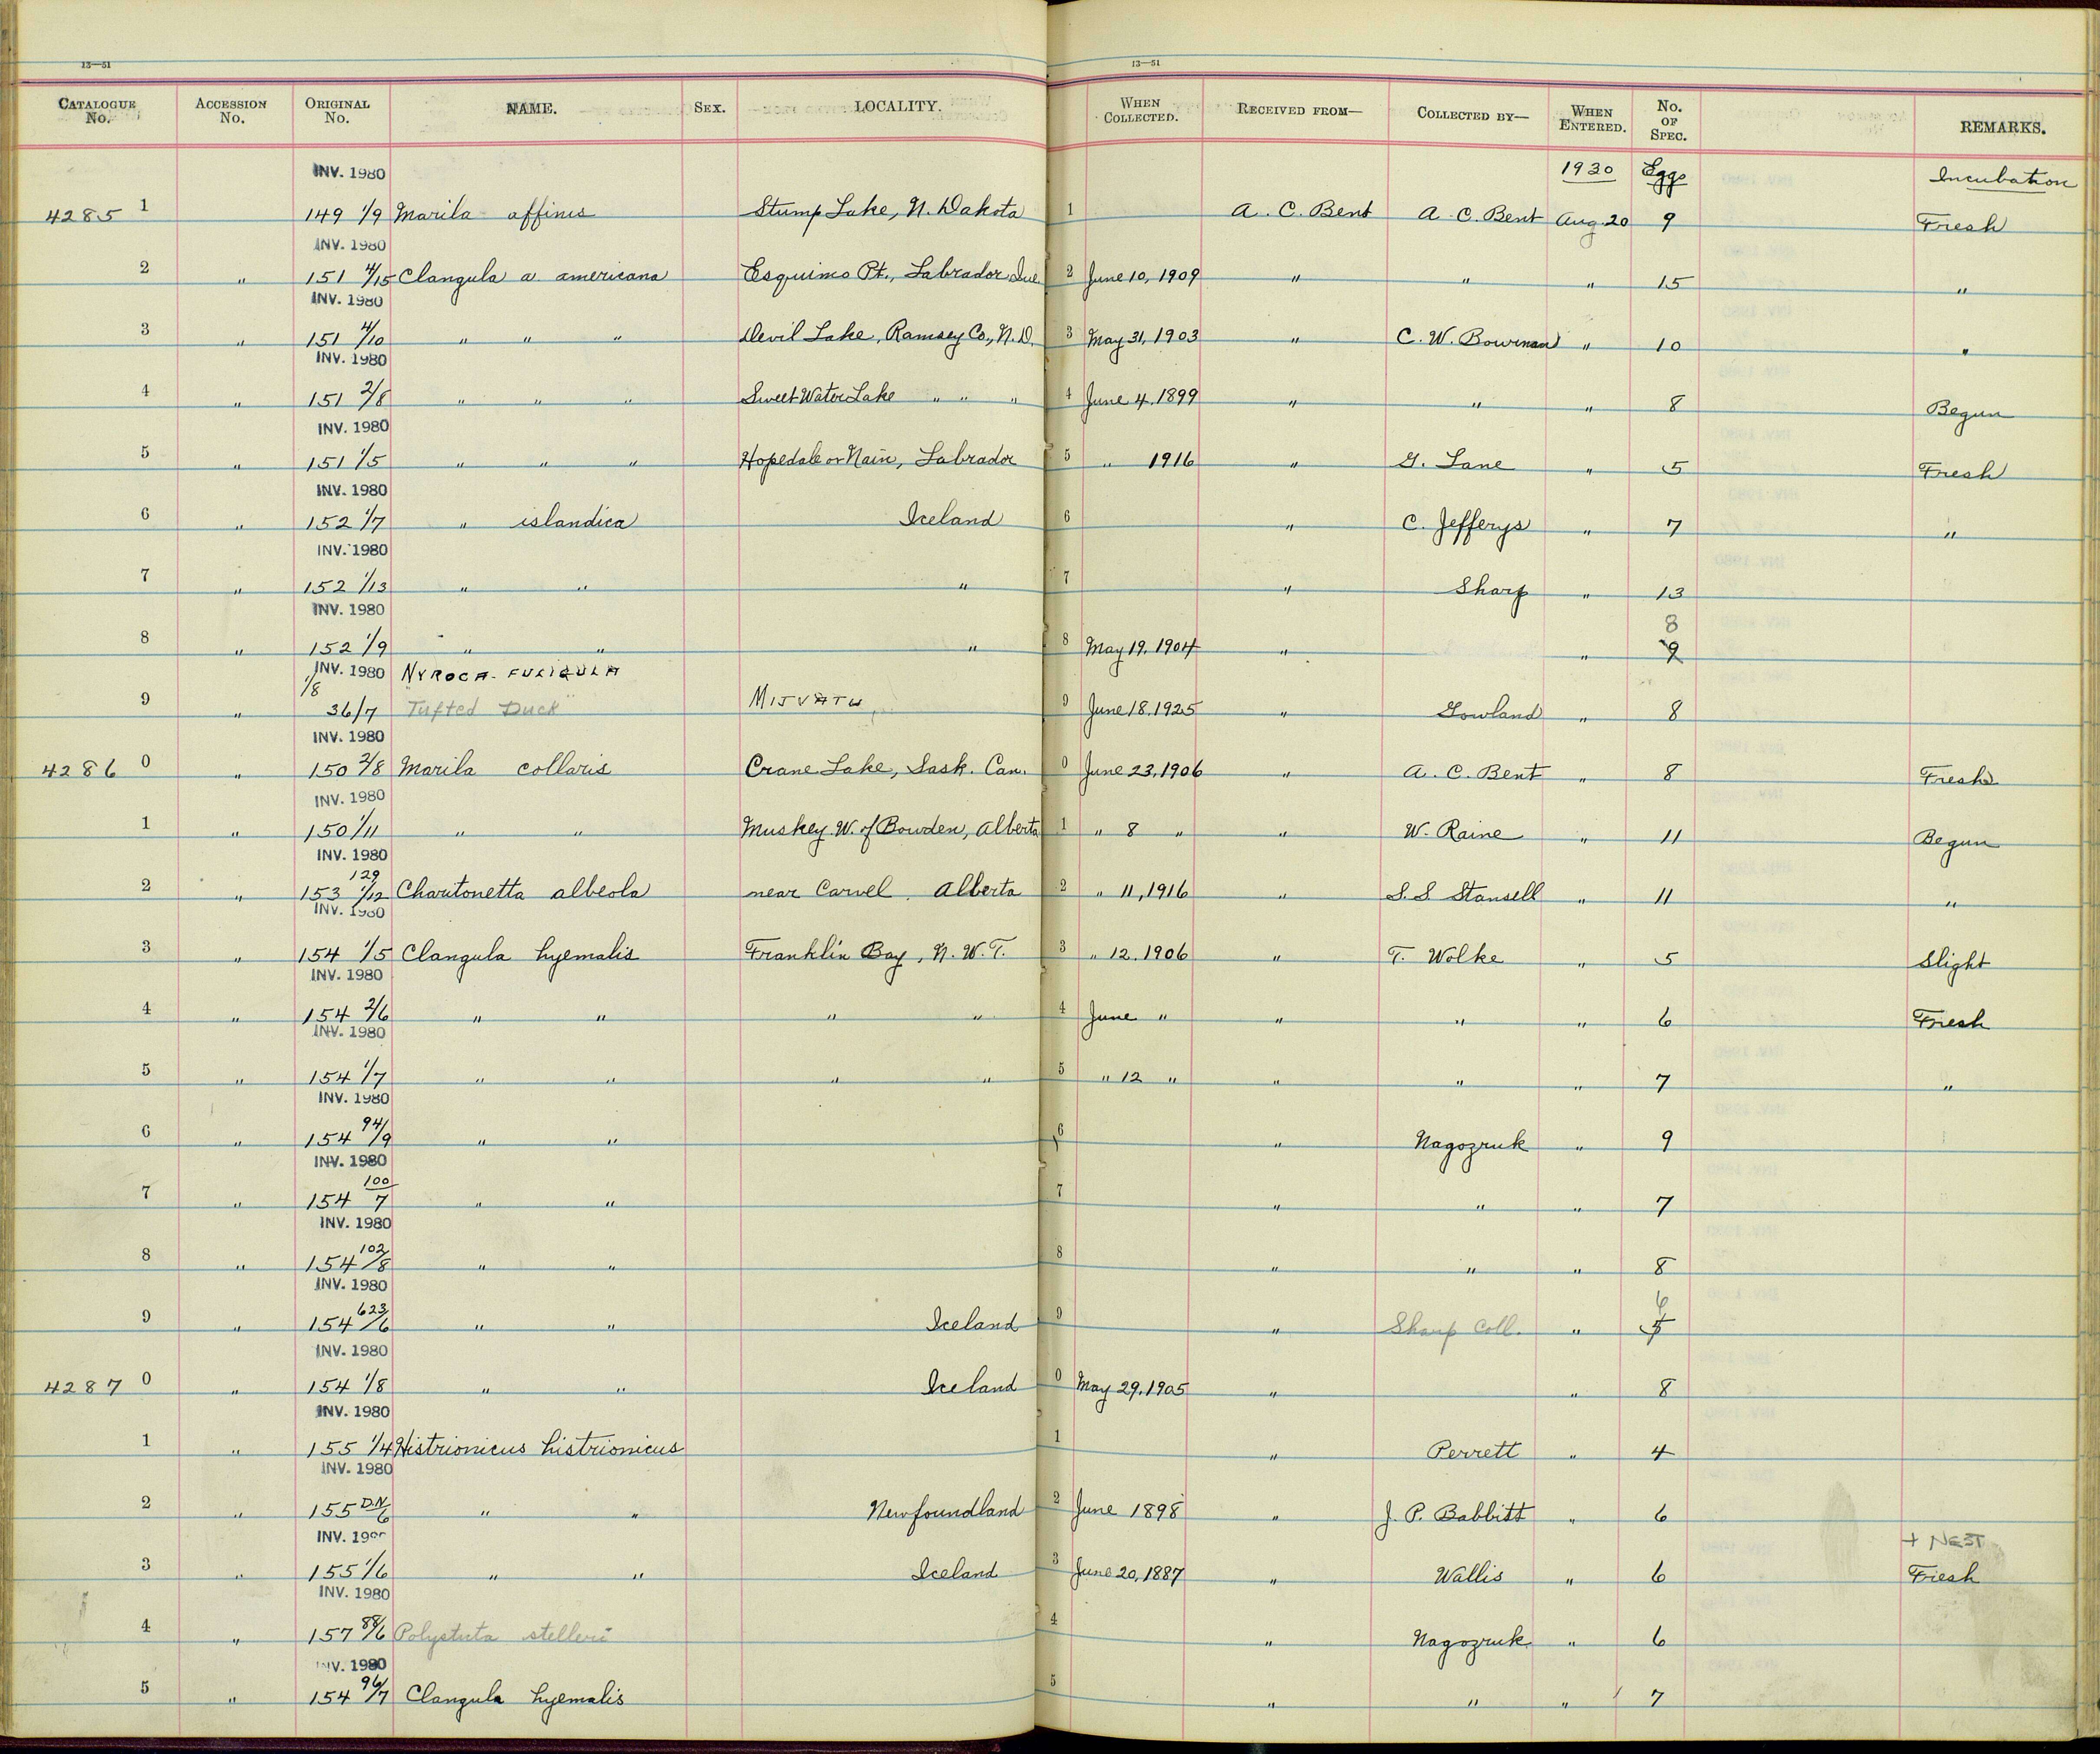 13—51 13—51
CATALOGUE No. ACCESSION No. ORIGINAL No. NAME. SEX. LOCALITY. WHEN COLLECTED. RECEIVED FROM— COLLECTED BY— WHEN ENTERED. No. OF SPEC. REMARKS.
INV. 1980 1930 Eggs Incubation
4285 1 149 1/9 Marila affinis Stump Lake, N. Dakota 1 A. C. Bent A. C. Bent Aug. 20 9 Fresh
INV. 1980
2 " 151 4/15 Clangula a. americana Esquimo Pt., Labrador Que. 2 June 10, 1909 " " " 15 "
INV. 1980
3 " 151 4/10 " " " Devil Lake, Ramsey Co., N. D. 3 May 31, 1903 " C. W. Bowman " 10 "
INV. 1980
4 " 151 2/8 " " " Sweet Water Lake " " " 4 June 4, 1899 " " " 8 Begun
INV. 1980
5 " 151 1/5 " " " Hopedale or Nain, Labrador 5 " 1916 " G. Lane " 5 Fresh
INV. 1980
6 " 152 1/7 " islandica Iceland 6 " C. Jefferys " 7 "
INV. 1980
7 " 152 1/13 " " " 7 " Sharp " 13
INV. 1980 8
8 " 152 1/9 " " " 8 May 19, 1904 " " 9
INV. 1980 NYROCA FULIGULA
1/8
9 " 36/7 Tufted Duck 9 June 18, 1925 " Gowland " 8
INV. 1980
4286 0 " 150 2/8 Marila collaris Crane Lake, Sask. Can. 0 June 23, 1906 " A. C. Bent " 8 Fresh
INV. 1980
1 " 150 1/11 " " Muskey W. of Bowden, Alberta 1 " 8 " " W. Raine " 11 Begun
INV. 1980
129
2 " 153 1/12 Charitonetta albeola near Carvel, Alberta 2 " 11, 1916 " S. S. Stansell " 11 "
INV. 1980
3 " 154 1/5 Clangula hyemalis Franklin Bay, N. W. T. 3 " 12, 1906 " T. Wolke " 5 Slight
INV. 1980
4 " 154 2/6 " " " " 4 June " " " " 6 Fresh
INV. 1980
5 " 154 1/7 " " " " 5 " 12 " " " " 7 "
INV. 1980
6 " 154 94/9 " " 6 " Nagozruk " 9
INV. 1980
7 " 154 100/7 " " 7 " " " 7
INV. 1980
8 " 154 102/8 " " 8 " " " 8
INV. 1980 6
9 " 154 623/6 " " Iceland 9 " Sharp Coll. " 5
INV. 1980
4287 0 " 154 1/8 " " Iceland 0 May 29, 1905 " " 8
INV. 1980
1 " 155 1/4 Histrionicus histrionicus 1 " Perrett " 4
INV. 1980
2 " 155 DN/6 " " Newfoundland 2 June 1898 " J. P. Babbitt " 6
INV. 1980 + NEST
3 " 155 1/6 " " Iceland 3 June 20, 1887 " Wallis " 6 Fresh
INV. 1980
4 " 157 88/6 Polysticta stelleri 4 " Nagozruk " 6
INV. 1980
5 " 154 96/7 Clangula hyemalis 5 " " " 7